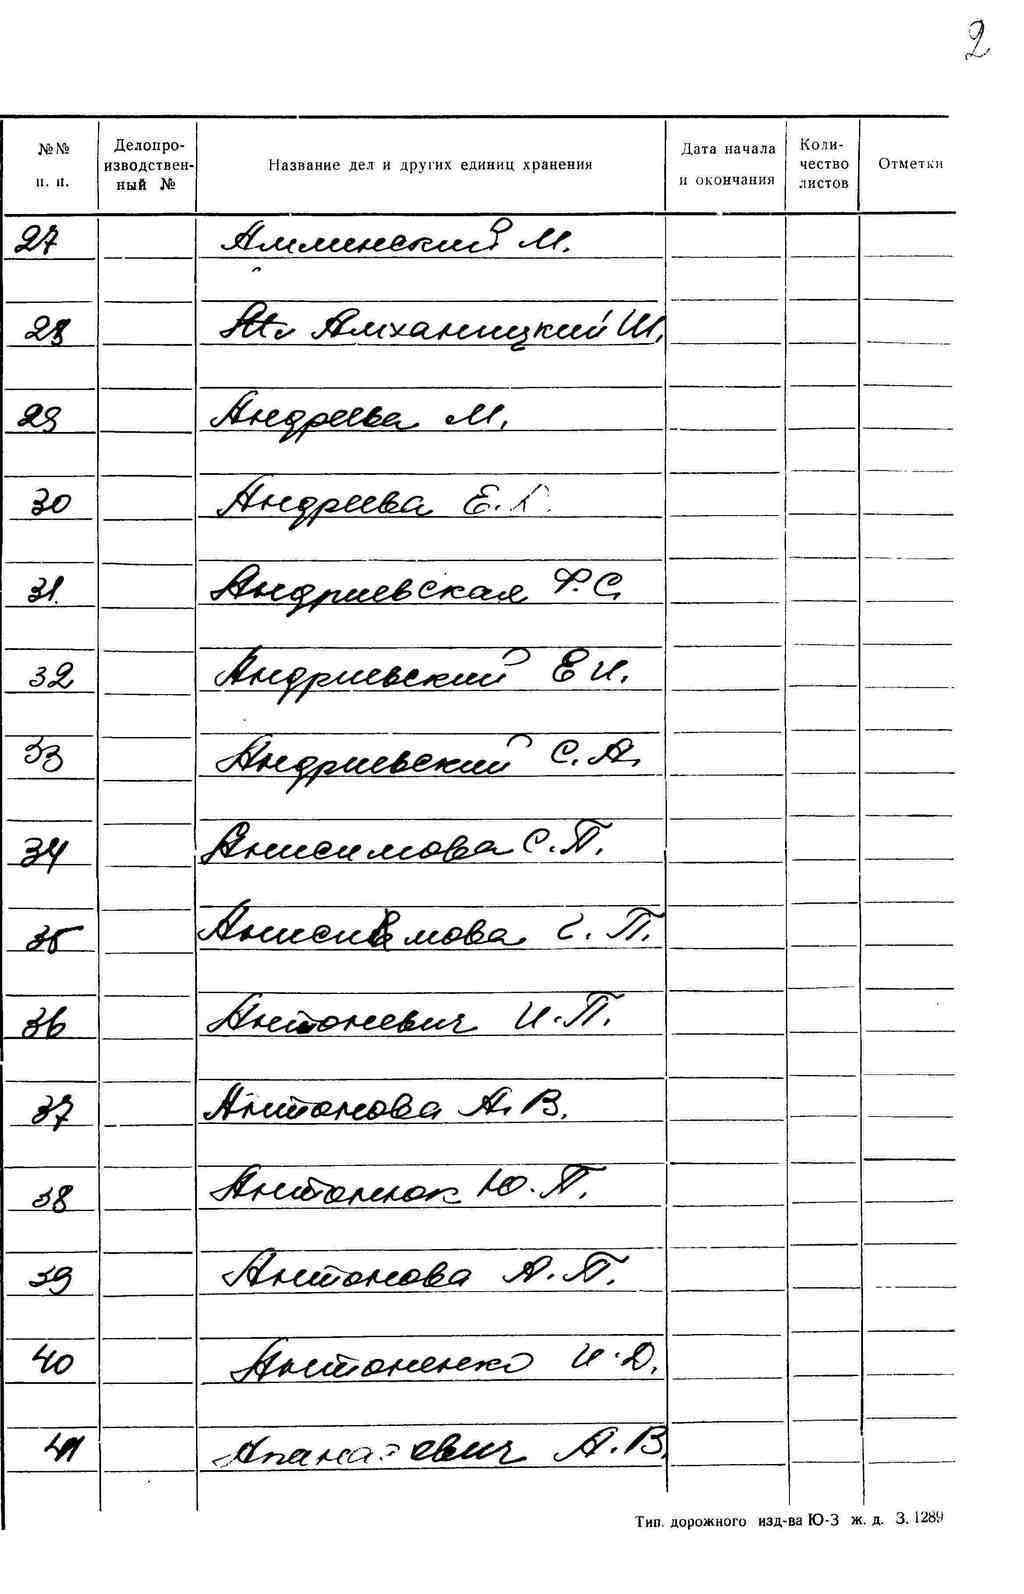 2
№№ п. п. Делопро-изводствен-ный № Название дел и других единиц хранения Дата начала и окончания Коли-чество листов Отметки
27 Амминский М.
28 Амханицкий Ш.
29 Андреева М.
30 Андреева Е.
31. Андриевская Ф. С.
32 Андриевский Е И.
33 Андриевский С. А.
34 Анисимова С. П.
35 Анисимова С. П.
36 Антоневич И. П.
37 Антонова А. В.
38 Антонюк Ю. П.
39 Антонова А. П.
40 Антоненко И. Д.
41 А. В.
Тип. дорожного изд-ва Ю-З ж. д. З. 1289